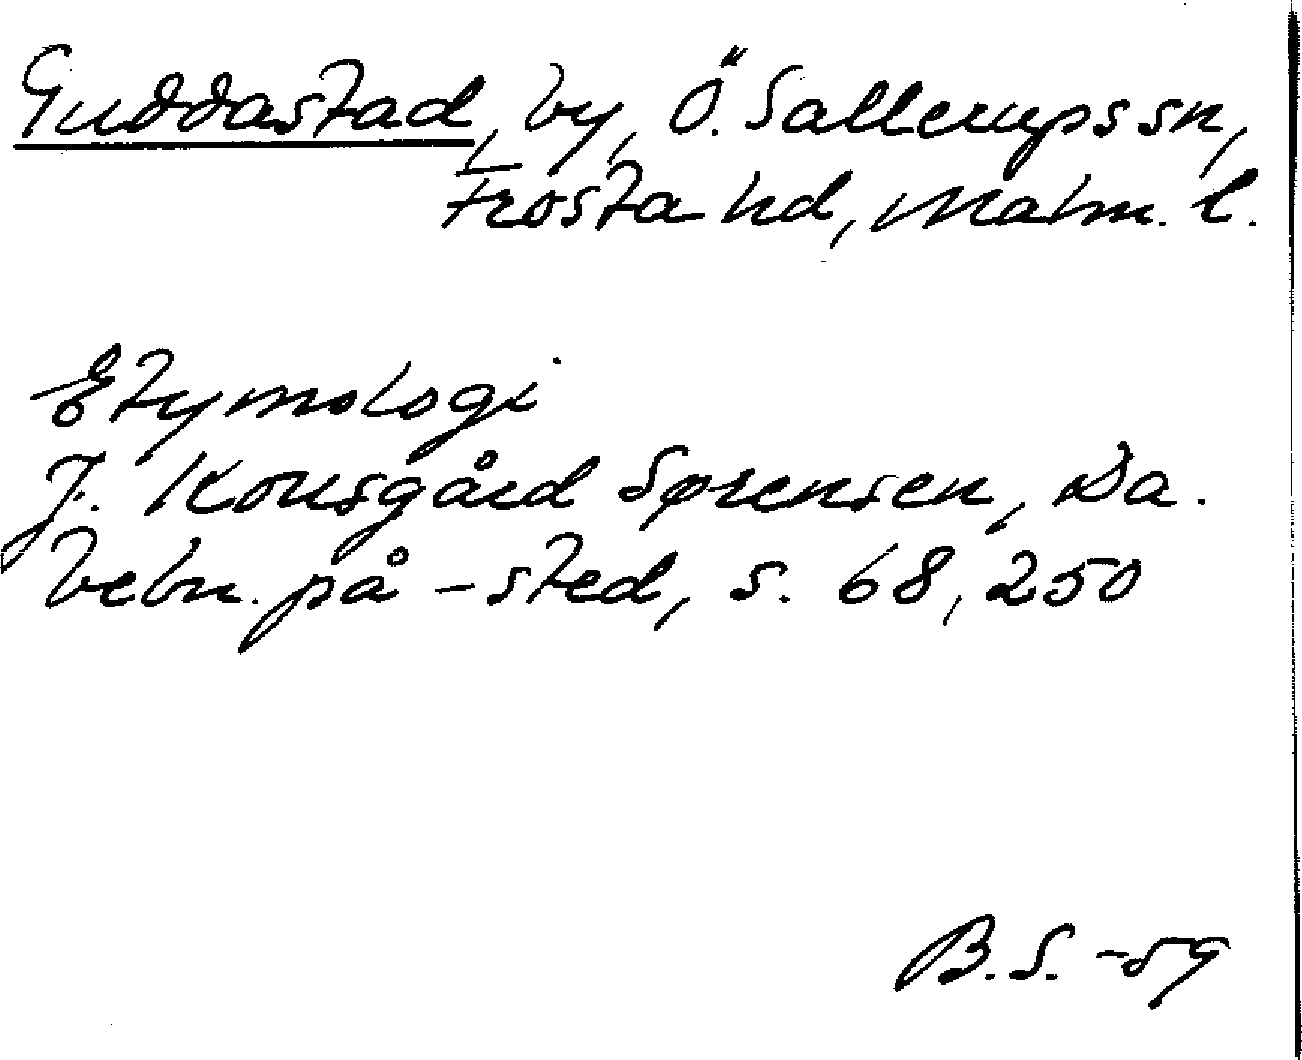 Guddastad, by, Ö. Sallerups sn,
Frosta hd, Malm. l.
Etymologi
J. Kousgård Sørensen, Da.
bebn. på -sted, s. 68, 250
B.S. -59